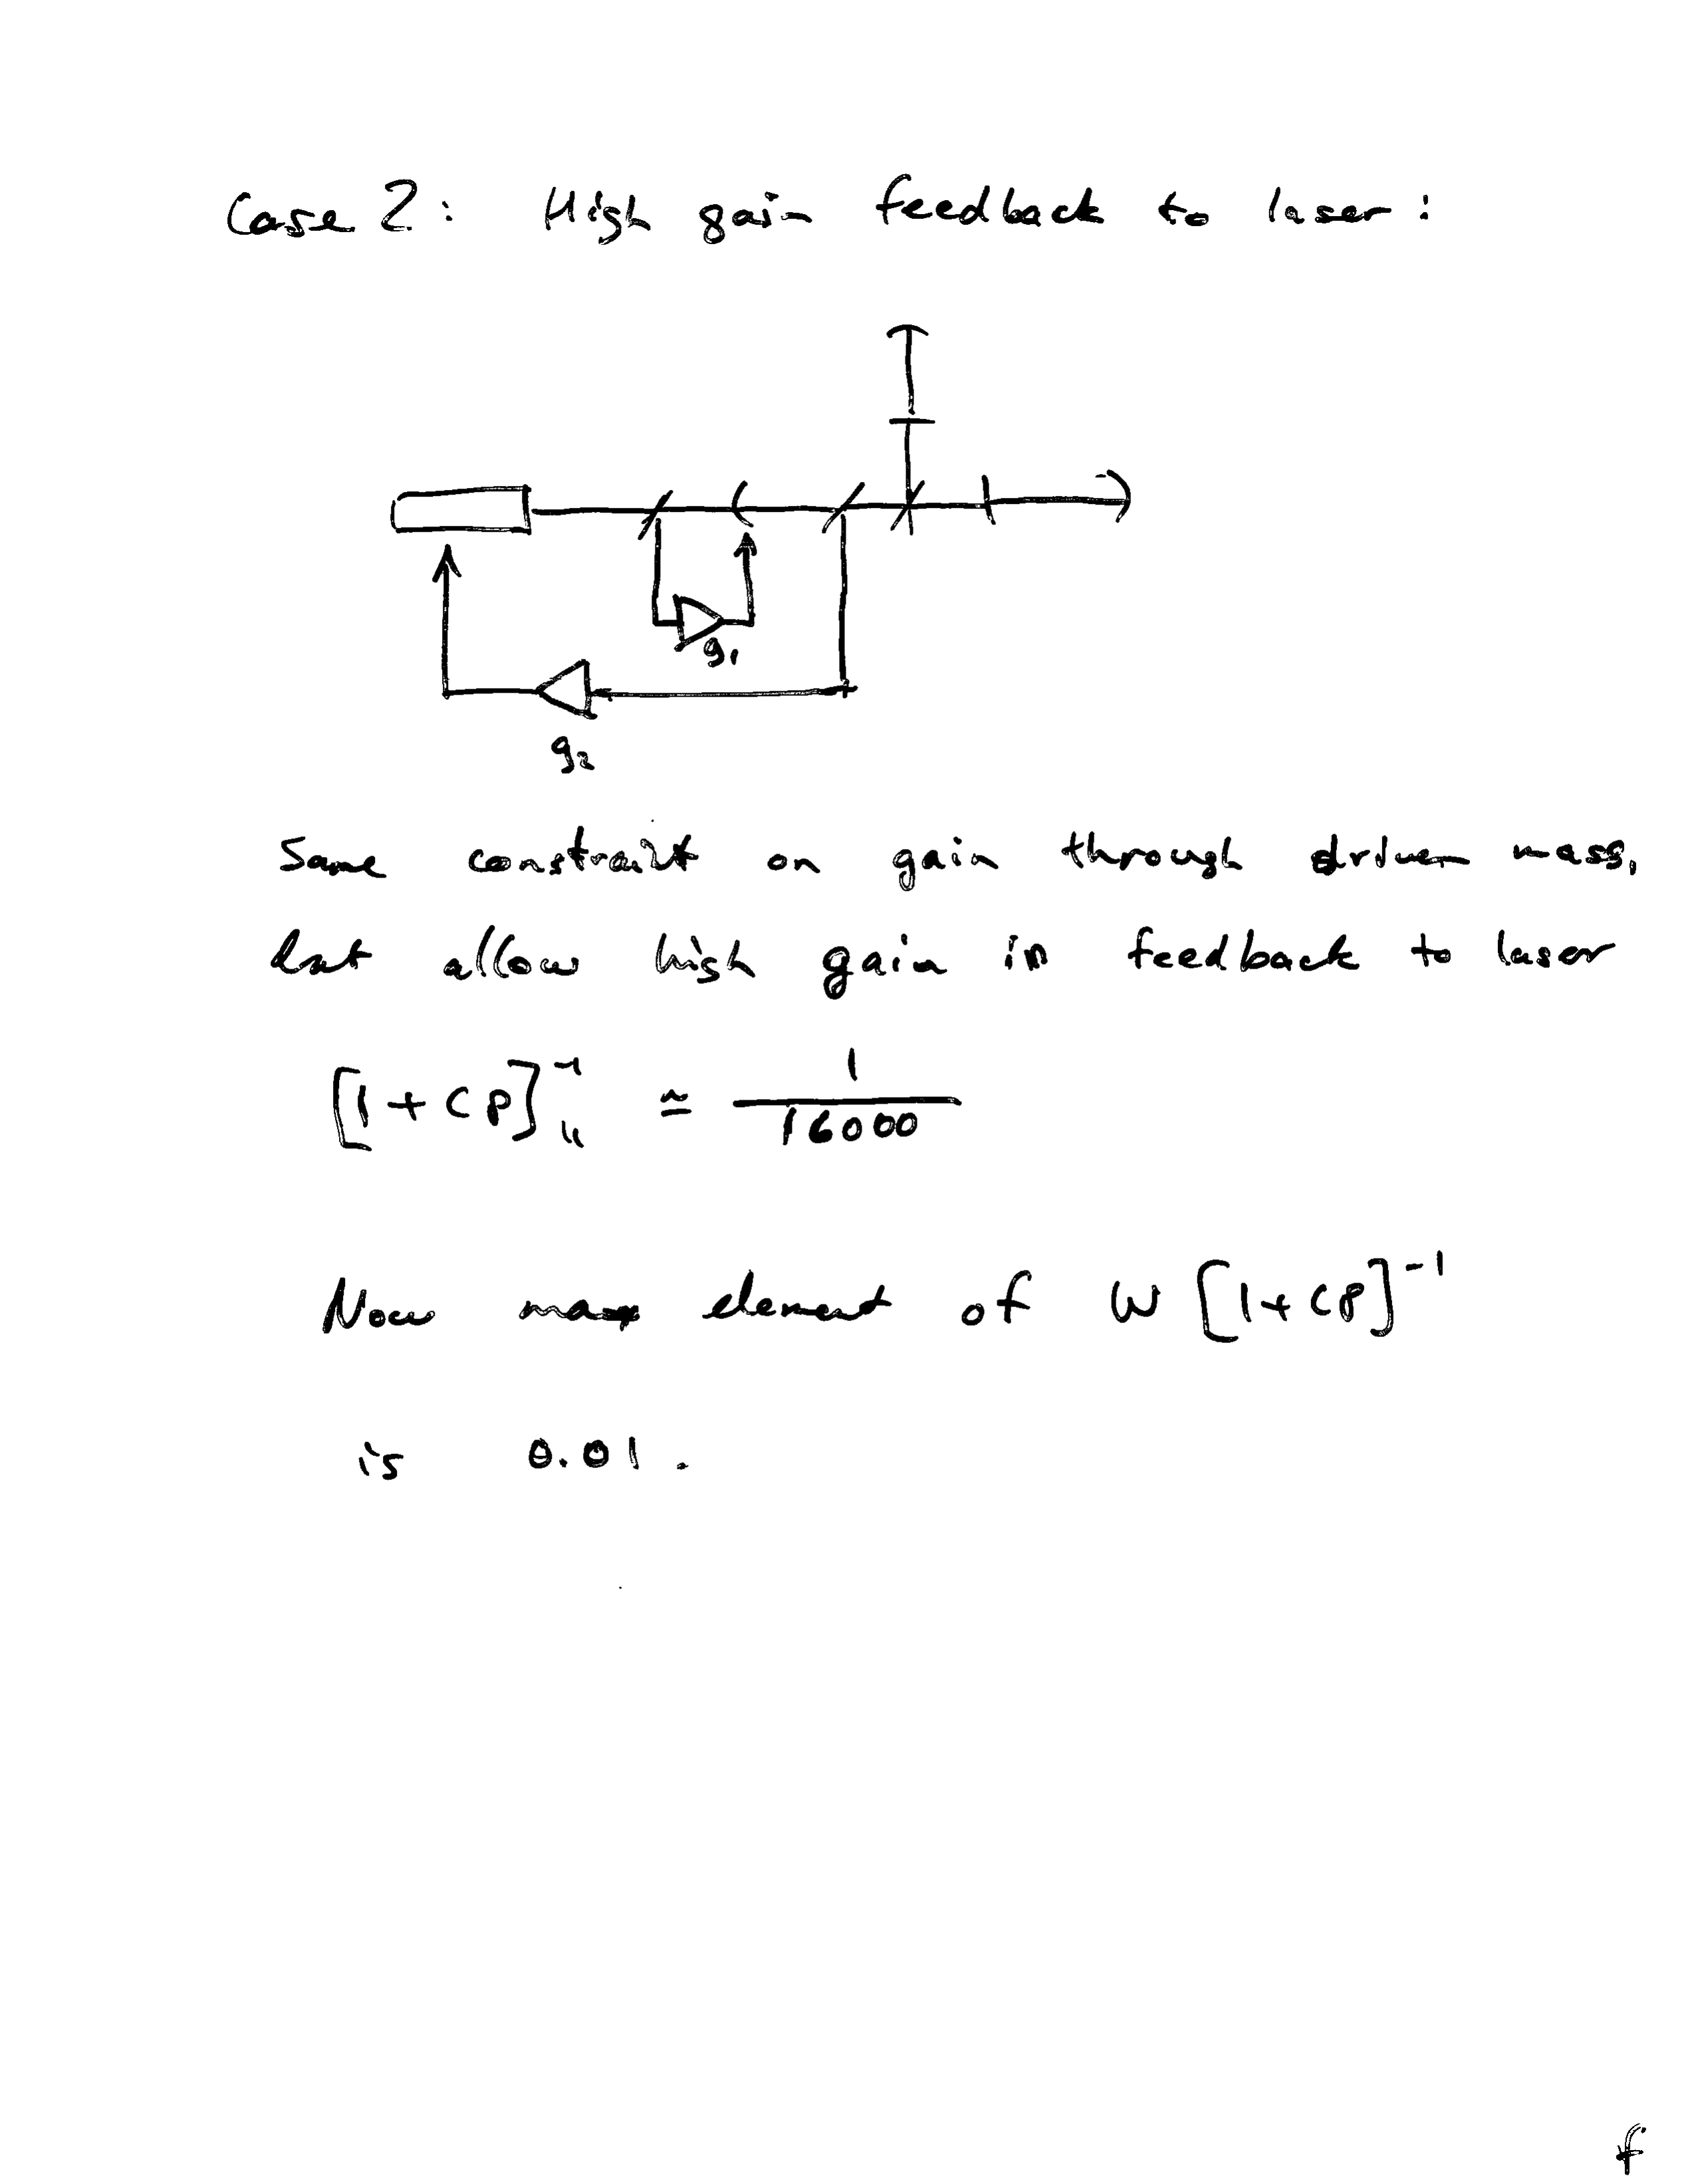 Case 2: High gain feedback to laser:
g1
g2
Same constraint on gain through driven mass,
but allow high gain in feedback to laser
[1 + CP]⁻¹₁₁ ≃ 1/16000
Now max element of W [1 + CP]⁻¹
is 0.01.